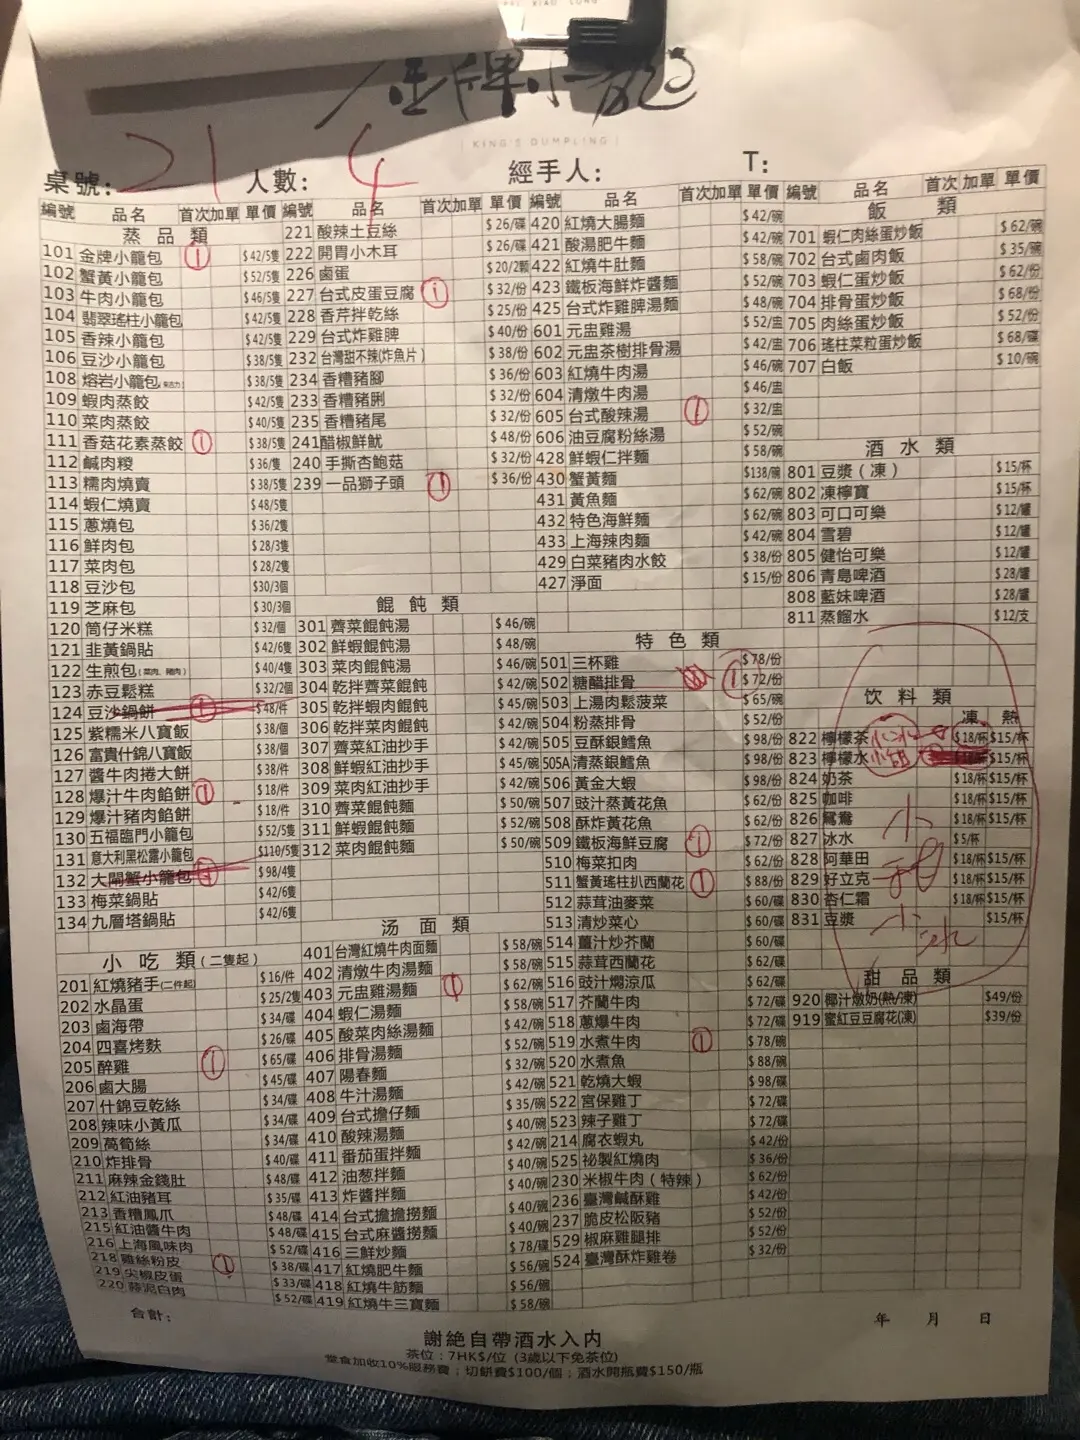 金牌小籠
KING'S DUMPLING
桌號: 21 人數: 4 經手人: T:
編號 品名 首次 加單 單價
蒸品類
101 金牌小籠包 ① $42/5隻
102 蟹黃小籠包 $52/5隻
103 牛肉小籠包 $46/5隻
104 翡翠瑤柱小籠包 $42/5隻
105 香辣小籠包 $42/5隻
106 豆沙小籠包 $38/5隻
108 熔岩小籠包 $38/5隻
109 蝦肉蒸餃 $42/5隻
110 菜肉蒸餃 $40/5隻
111 香菇花素蒸餃 ① $38/5隻
112 鹹肉糭 $36/隻
113 糯肉燒賣 $38/5隻
114 蝦仁燒賣 $48/5隻
115 蔥燒包 $36/2隻
116 鮮肉包 $28/3隻
117 菜肉包 $28/2隻
118 豆沙包 $30/3個
119 芝麻包 $30/3個
120 筒仔米糕 $32/個
121 韭黃鍋貼 $42/6隻
122 生煎包(菜肉、豬肉) $40/4隻
123 赤豆鬆糕 $32/2個
124 豆沙鍋餅 ① $48/件
125 紫糯米八寶飯 $38/個
126 富貴什錦八寶飯 $38/個
127 醬牛肉捲大餅 $38/件
128 爆汁牛肉餡餅 ① $18/件
129 爆汁豬肉餡餅 $18/件
130 五福臨門小籠包 $52/5隻
131 意大利黑松露小籠包 $110/5隻
132 大閘蟹小籠包 $98/4隻
133 梅菜鍋貼 $42/6隻
134 九層塔鍋貼 $42/6隻
小吃類(二隻起)
201 紅燒豬手(二件起) $16/件
202 水晶蛋 $25/2隻
203 鹵海帶 $34/碟
204 四喜烤麩 $26/碟
205 醉雞 ① $65/碟
206 鹵大腸 $45/碟
207 什錦豆乾絲 $34/碟
208 辣味小黃瓜 $34/碟
209 萵筍絲 $34/碟
210 炸排骨 $40/碟
211 麻辣金錢肚 $48/碟
212 紅油豬耳 $35/碟
213 香糟鳳爪 $48/碟
215 紅油醬牛肉 $48/碟
216 上海風味肉 $52/碟
218 雞絲粉皮 ① $38/碟
219 尖椒皮蛋 $33/碟
220 蒜泥白肉 $52/碟
編號 品名 首次 加單 單價
221 酸辣土豆絲 $26/碟
222 開胃小木耳 $26/碟
226 鹵蛋 $20/2顆
227 台式皮蛋豆腐 ① $32/份
228 香芹拌乾絲 $25/份
229 台式炸雞脾 $40/份
232 台灣甜不辣(炸魚片) $38/份
234 香糟豬腳 $36/份
233 香糟豬脷 $32/份
235 香糟豬尾 $32/份
241 醋椒鮮魷 $48/份
240 手撕杏鮑菇 $32/份
239 一品獅子頭 ① $36/份
餛飩類
301 薺菜餛飩湯 $46/碗
302 鮮蝦餛飩湯 $48/碗
303 菜肉餛飩湯 $46/碗
304 乾拌薺菜餛飩 $42/碗
305 乾拌蝦肉餛飩 $45/碗
306 乾拌菜肉餛飩 $42/碗
307 薺菜紅油抄手 $42/碗
308 鮮蝦紅油抄手 $45/碗
309 菜肉紅油抄手 $42/碗
310 薺菜餛飩麵 $50/碗
311 鮮蝦餛飩麵 $52/碗
312 菜肉餛飩麵 $50/碗
汤面類
401 台灣紅燒牛肉面麵 $58/碗
402 清燉牛肉湯麵 $58/碗
403 元盅雞湯麵 ① $62/碗
404 蝦仁湯麵 $58/碗
405 酸菜肉絲湯麵 $42/碗
406 排骨湯麵 $52/碗
407 陽春麵 $32/碗
408 牛汁湯麵 $42/碗
409 台式擔仔麵 $35/碗
410 酸辣湯麵 $40/碗
411 番茄蛋拌麵 $42/碗
412 油葱拌麵 $40/碗
413 炸醬拌麵 $40/碗
414 台式擔擔撈麵 $40/碗
415 台式麻醬撈麵 $40/碗
416 三鮮炒麵 $78/碟
417 紅燒肥牛麵 $56/碗
418 紅燒牛筋麵 $56/碗
419 紅燒牛三寶麵 $58/碗
編號 品名 首次 加單 單價
420 紅燒大腸麵 $42/碗
421 酸湯肥牛麵 $42/碗
422 紅燒牛肚麵 $58/碗
423 鐵板海鮮炸醬麵 $52/碗
425 台式炸雞脾湯麵 $48/碗
601 元盅雞湯 $52/盅
602 元盅茶樹排骨湯 $42/盅
603 紅燒牛肉湯 $46/碗
604 清燉牛肉湯 $46/盅
605 台式酸辣湯 ① $32/盅
606 油豆腐粉絲湯 $52/碗
428 鮮蝦仁拌麵 $58/碗
430 蟹黃麵 $138/碗
431 黃魚麵 $62/碗
432 特色海鮮麵 $62/碗
433 上海辣肉麵 $42/碗
429 白菜豬肉水餃 $38/份
427 淨面 $15/份
特色類
501 三杯雞 $78/份
502 糖醋排骨 ① $72/份
503 上湯肉鬆菠菜 $65/碗
504 粉蒸排骨 $52/份
505 豆酥銀鱈魚 $98/份
505A 清蒸銀鱈魚 $98/份
506 黃金大蝦 $98/份
507 豉汁蒸黃花魚 $62/份
508 酥炸黃花魚 $62/份
509 鐵板海鮮豆腐 ① $72/份
510 梅菜扣肉 $62/份
511 蟹黃瑤柱扒西蘭花 ① $88/份
512 蒜茸油麥菜 $60/碟
513 清炒菜心 $60/碟
514 薑汁炒芥蘭 $60/碟
515 蒜茸西蘭花 $62/碟
516 豉汁燜涼瓜 $62/碟
517 芥蘭牛肉 $72/碟
518 蔥爆牛肉 $72/碟
519 水煮牛肉 ① $78/碗
520 水煮魚 $88/碗
521 乾燒大蝦 $98/碟
522 宮保雞丁 $72/碟
523 辣子雞丁 $72/碟
214 腐衣蝦丸 $42/份
525 祕製紅燒肉 $36/份
230 米椒牛肉(特辣) $62/份
236 臺灣鹹酥雞 $42/份
237 脆皮松阪豬 $52/份
529 椒麻雞腿排 $52/份
524 臺灣酥炸雞卷 $32/份
編號 品名 首次 加單 單價
飯類
701 蝦仁肉絲蛋炒飯 $62/碗
702 台式鹵肉飯 $35/碗
703 蝦仁蛋炒飯 $62/份
704 排骨蛋炒飯 $68/份
705 肉絲蛋炒飯 $52/份
706 瑤柱菜粒蛋炒飯 $68/碟
707 白飯 $10/碗
酒水類
801 豆漿(凍) $15/杯
802 凍檸寶 $15/杯
803 可口可樂 $12/罐
804 雪碧 $12/罐
805 健怡可樂 $12/罐
806 青島啤酒 $28/罐
808 藍妹啤酒 $28/罐
811 蒸餾水 $12/支
饮料類
凍 熱
822 檸檬茶 小冰 $18/杯 $15/杯
823 檸檬水 小甜 $15/杯
824 奶茶 $18/杯 $15/杯
825 咖啡 $18/杯 $15/杯
826 鴛鴦 $18/杯 $15/杯
827 冰水 $5/杯
828 阿華田 $18/杯 $15/杯
829 好立克 $18/杯 $15/杯
830 杏仁霜 $18/杯 $15/杯
831 豆漿 $15/杯
小甜
小冰
甜品類
920 椰汁燉奶(熱/凍) $49/份
919 蜜紅豆豆腐花(凍) $39/份
合計: 年 月 日
謝絕自帶酒水入内
茶位:7HK$/位 (3歲以下免茶位)
堂食加收10%服務費;切餅費$100/個;酒水開瓶費$150/瓶